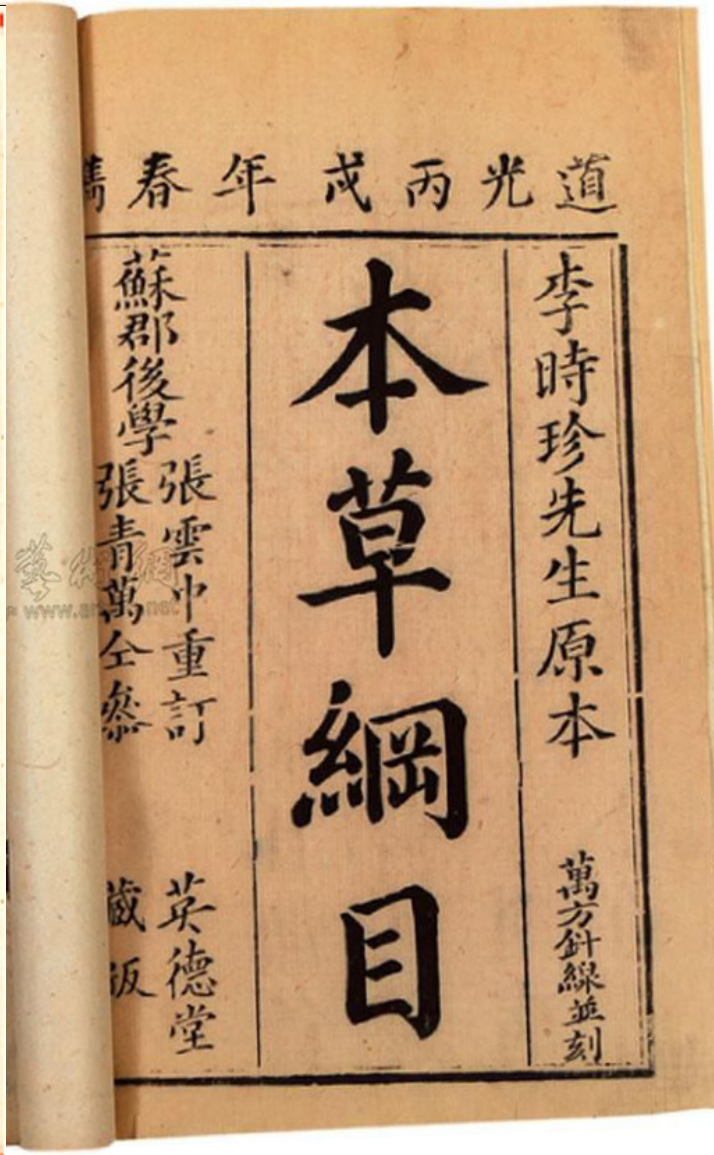 道光丙戌年春鐫
李時珍先生原本
萬方針線並刻
本草綱目
蘇郡後學
張雲中重訂
張青萬仝參
英德堂
藏版